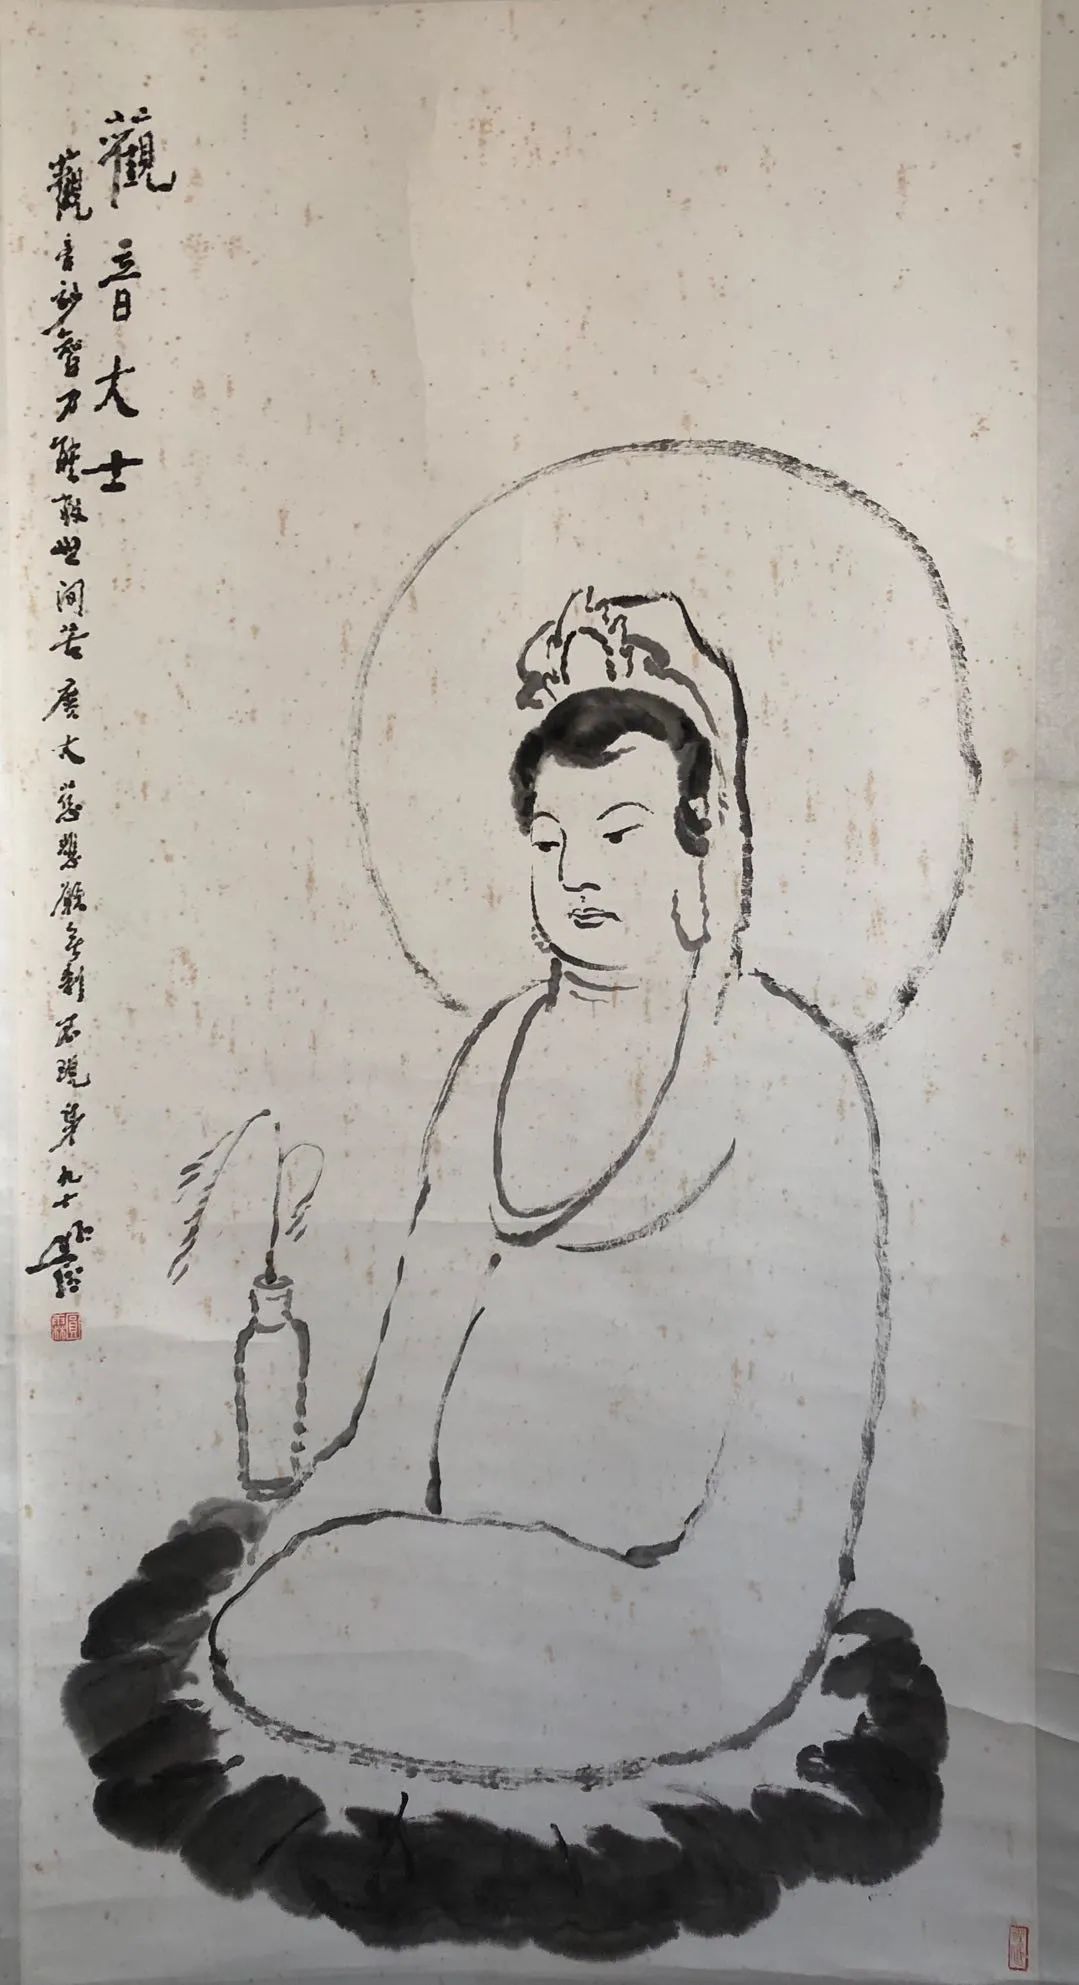 觀音大士
觀音妙智力能救世間苦廣大慈悲願無刹不現身九十
圓霖